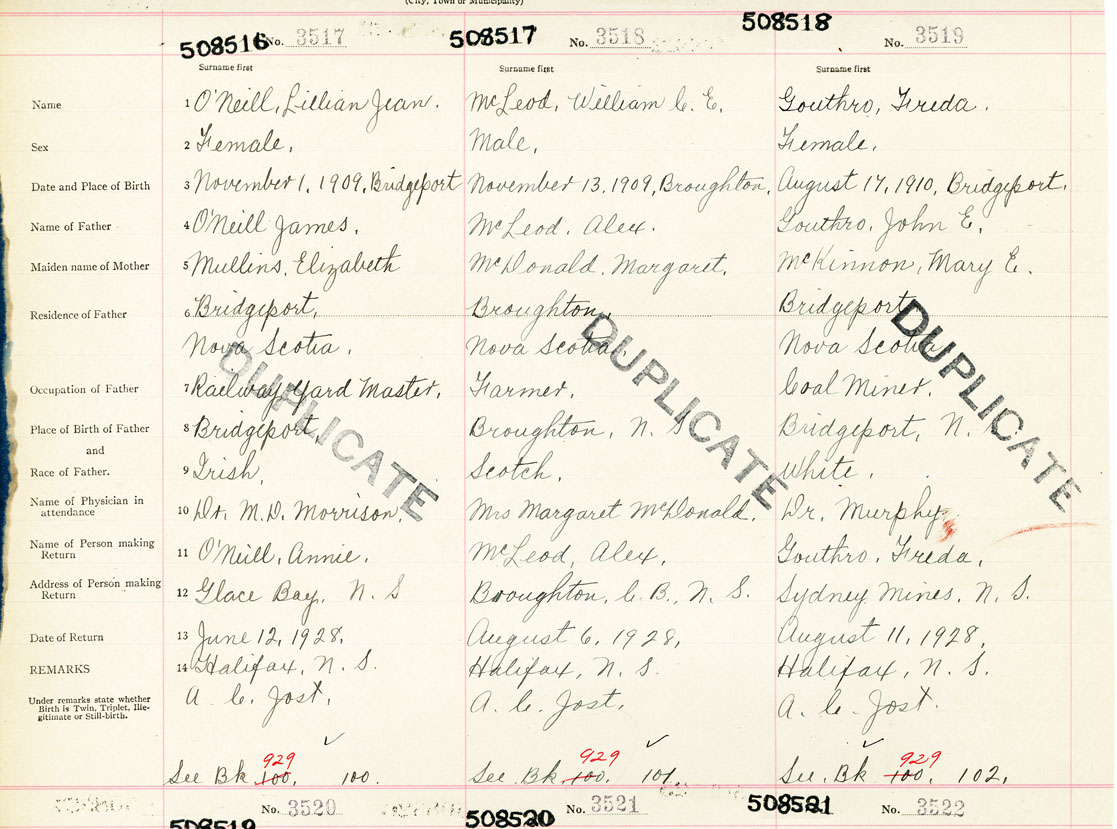 (City, Town or Municipality)
508516 No. 3517 508517 No. 3518 508518 No. 3519
Surname first Surname first Surname first
Name 1 O'Neill, Lillian Jean. McLeod, William C. E. Gouthro, Freda.
Sex 2 Female, Male, Female,
Date and Place of Birth 3 November 1, 1909, Bridgeport November 13, 1909, Broughton, August 17, 1910, Bridgeport.
Name of Father 4 O'Neill James, McLeod, Alex. Gouthro, John E,
Maiden name of Mother 5 Mullins, Elizabeth McDonald, Margaret, McKinnon, Mary E.
Residence of Father 6 Bridgeport, Broughton, Bridgeport
Nova Scotia, Nova Scotia Nova Scotia
DUPLICATE DUPLICATE DUPLICATE
Occupation of Father 7 Railway Yard Master, Farmer, Coal Miner.
Place of Birth of Father 8 Bridgeport, Broughton, N. S Bridgeport, N.
and
Race of Father. 9 Irish, Scotch, White.
Name of Physician in
attendance 10 Dr. M.D. Morrison, Mrs Margaret McDonald, Dr. Murphy
Name of Person making
Return 11 O'Neill, Annie, McLeod, Alex, Gouthro, Freda,
Address of Person making
Return 12 Glace Bay, N. S Broughton, C. B., N. S. Sydney Mines, N. S.
Date of Return 13 June 12, 1928, August 6, 1928, August 11, 1928,
REMARKS 14 Halifax, N. S. Halifax, N. S. Halifax, N. S.
Under remarks state whether
Birth is Twin, Triplet, Ille-
gitimate or Still-birth.
A. C. Jost, A. C. Jost, A. C. Jost.
929 929 929
See Bk 100, 100. See Bk 100, 101, See Bk 100, 102,
No. 3520 No. 3521 No. 3522
508519 508520 508521